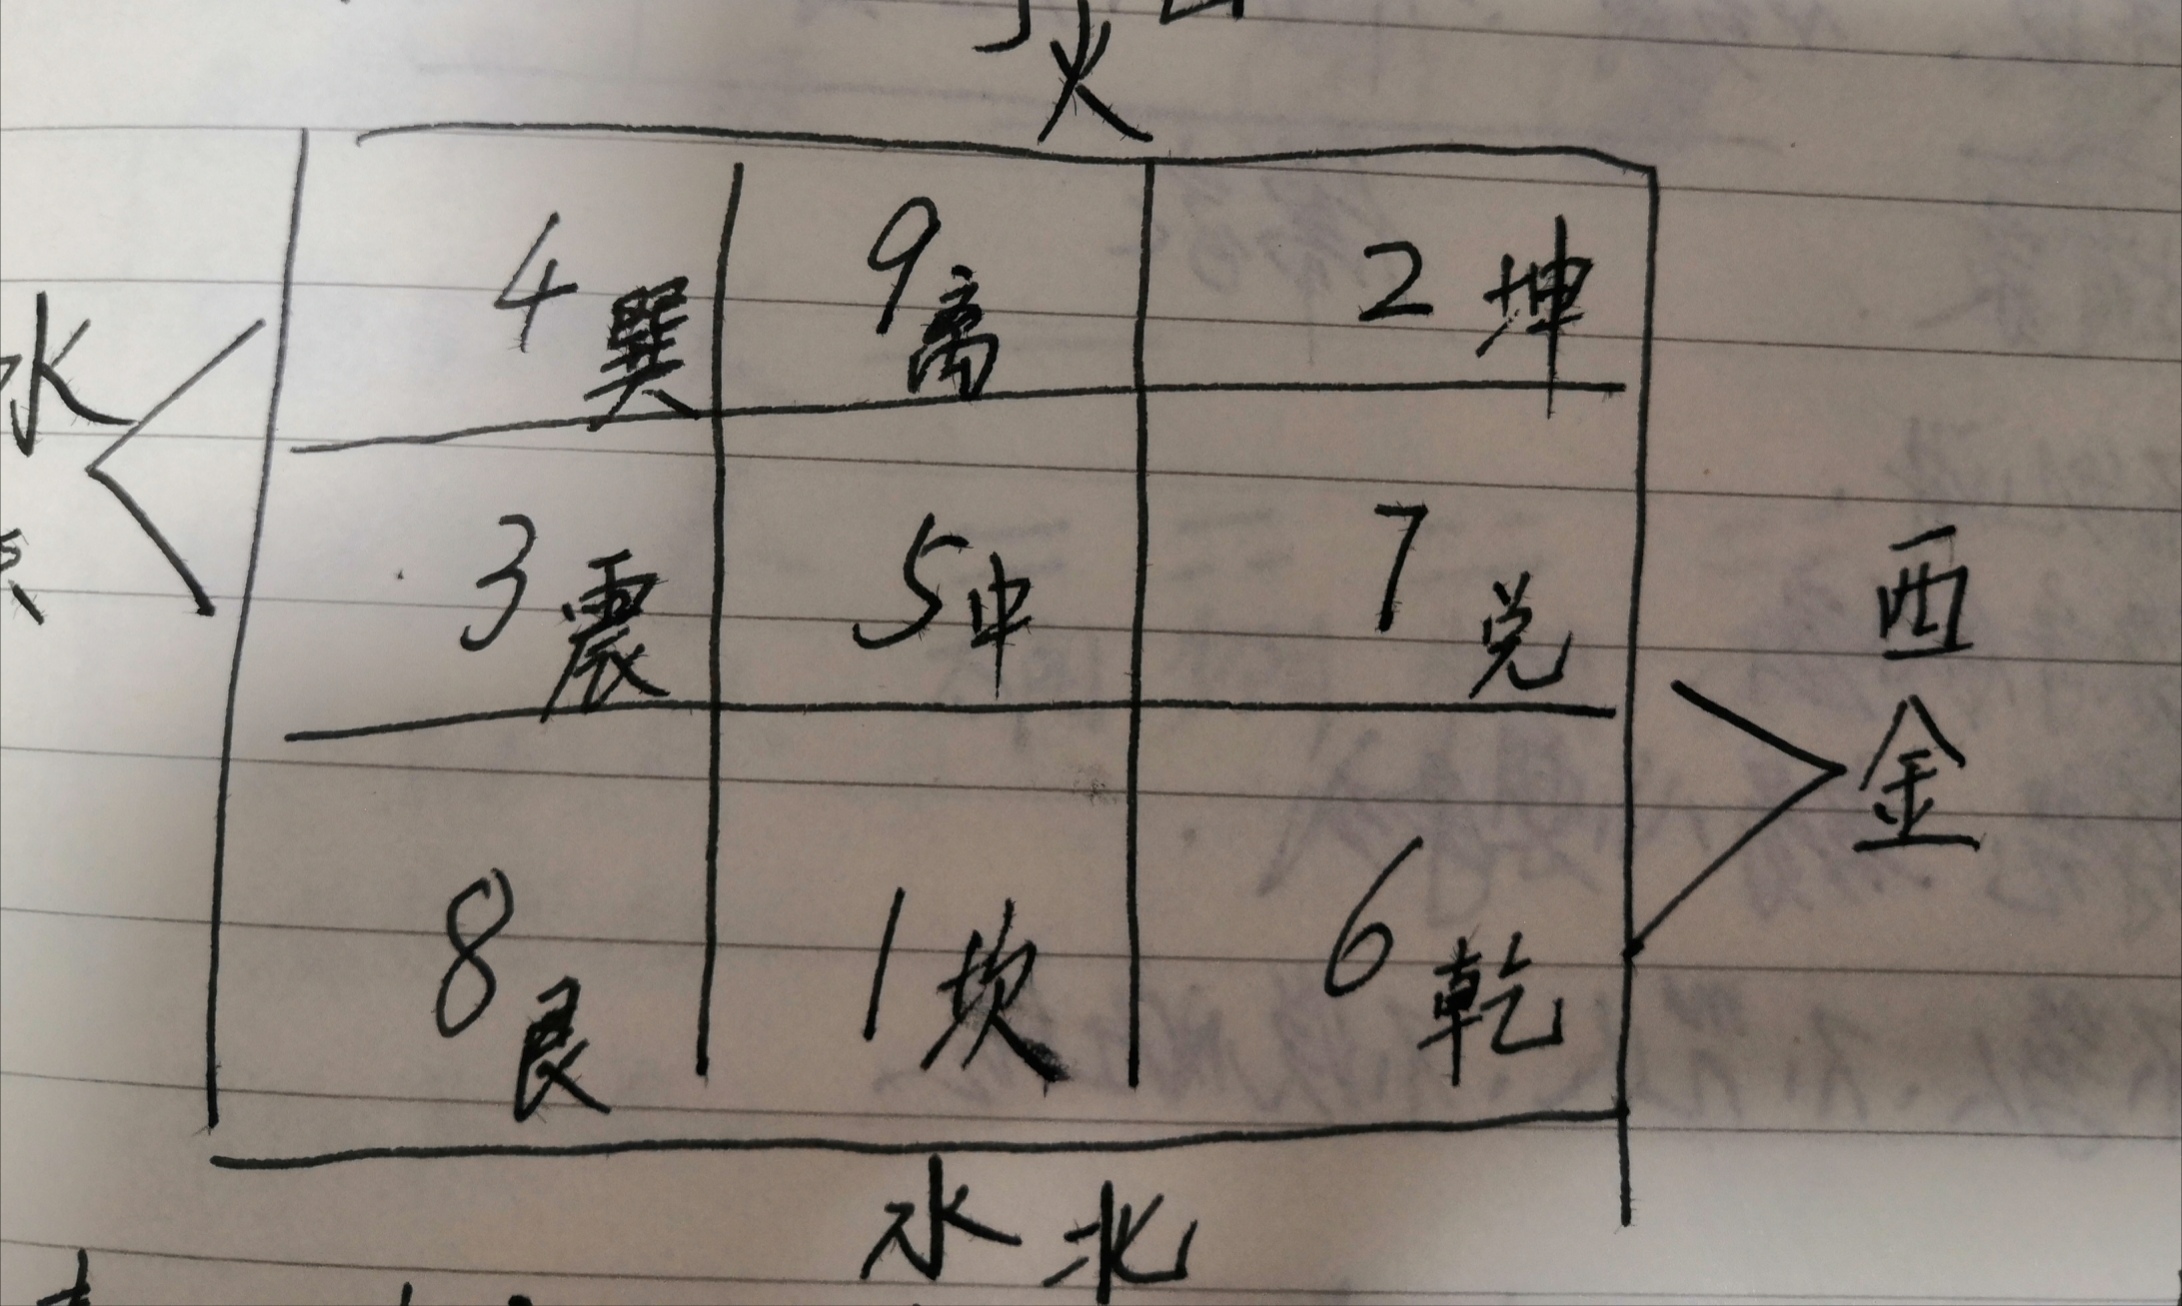 火
4巽 9离 2坤
水
3震 5中 7兑
西
金
8艮 1坎 6乾
水北